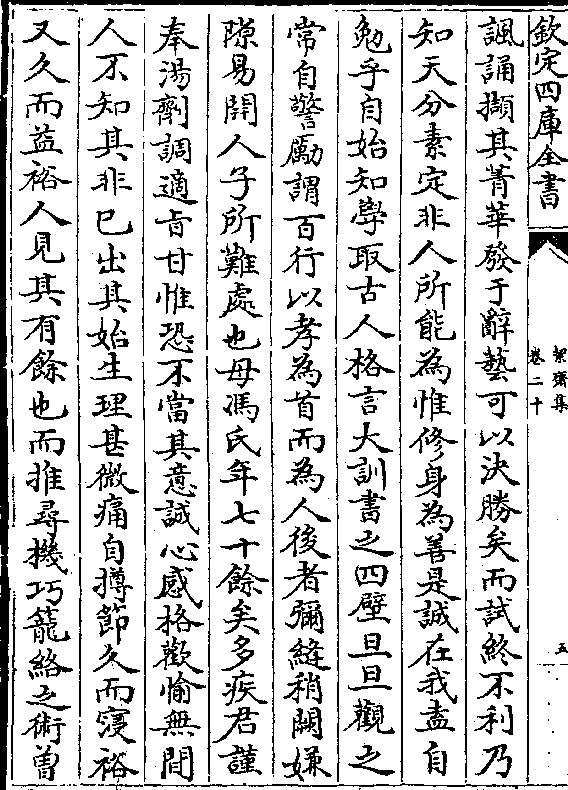 欽定四庫全書
絜齋集
卷二十
五
諷誦擷其菁華發于辭藝可以決勝矣而試終不利乃
知天分素定非人所能為惟修身為善是誠在我盍自
勉乎自始知學取古人格言大訓書之四壁旦旦觀之
常自警勵謂百行以孝為首而為人後者彌縫稍闕嫌
隙易開人子所難處也母馮氏年七十餘矣多疾君謹
奉湯劑調適旨甘惟恐不當其意誠心感格歡愉無間
人不知其非已出其始生理甚微痛自撙節久而寖裕
又久而益裕人見其有餘也而推尋機巧籠絡之術曾